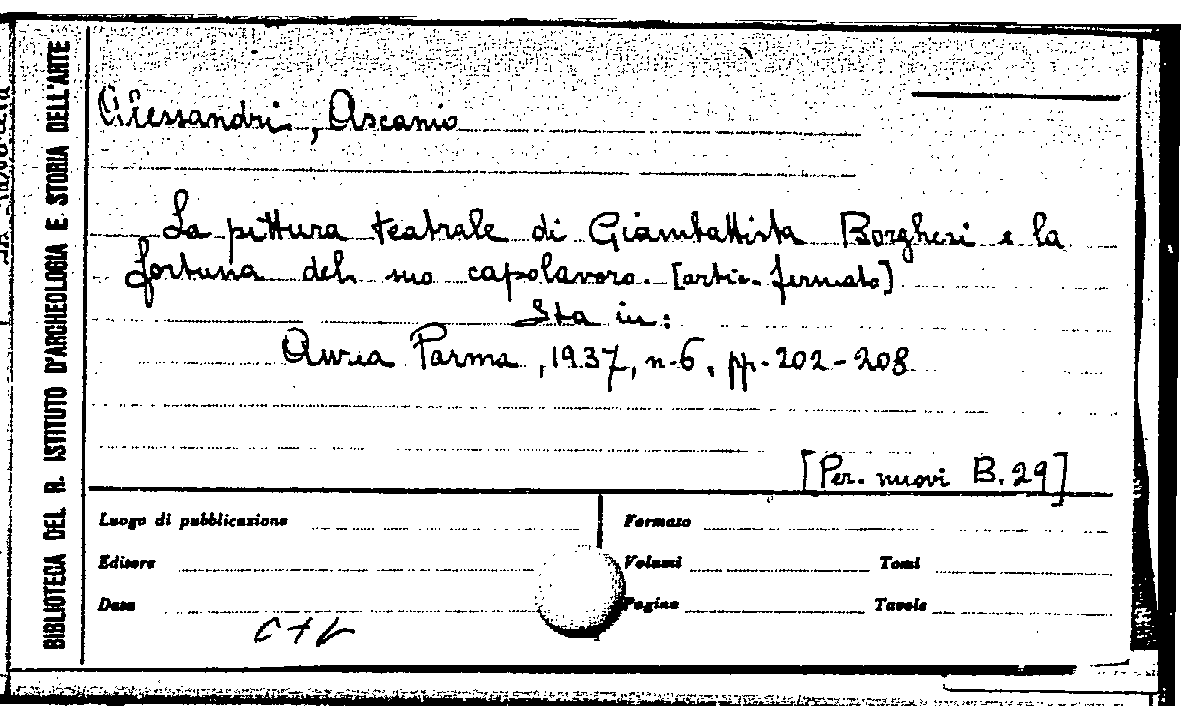 BIBLIOTECA DEL R. ISTITUTO D'ARCHEOLOGIA E STORIA DELL'ARTE
Alessandri, Ascanio
La pittura teatrale di Giambattista Borghesi e la
fortuna del suo capolavoro. [artic. firmato]
Sta in:
Aurea Parma, 1937, n. 6, pp. 202-208
[Per. nuovi B. 29]
Luogo di pubblicazione
Formato
Editore
Volumi
Tomi
Data
Pagine
Tavole